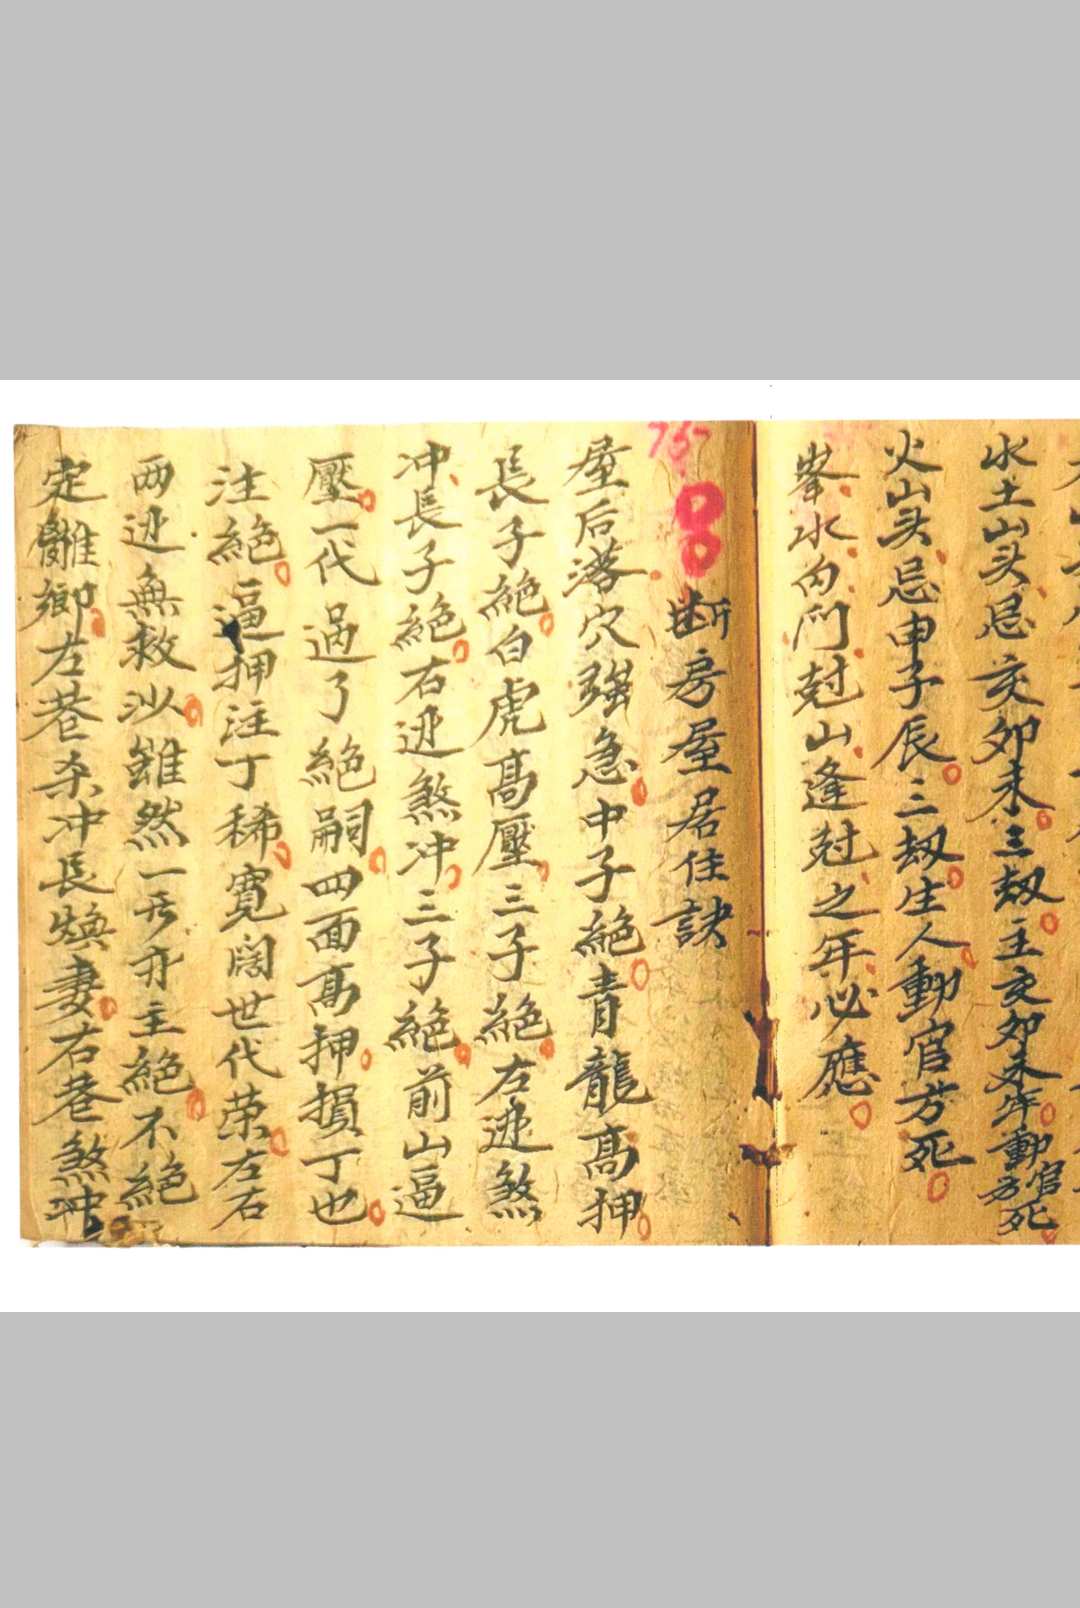 水土山头忌亥卯未三刼主亥卯未年動官方死
火山头忌申子辰三刼生人動官方死
峯水向门尅山逢尅之年必應
75
断房屋居住訣
屋后落穴強急中子絶青龍高押
長子絶白虎高壓三子絶左边煞
冲長子絶右边煞冲三子絶前山逼
壓一代過了絶嗣四面高押損丁也
注絶逼押注丁稀寛闊世代荣左右
两边無救沙雖然一房亦主絶不絶
定離鄉左巷杀冲長煥妻右巷煞冲